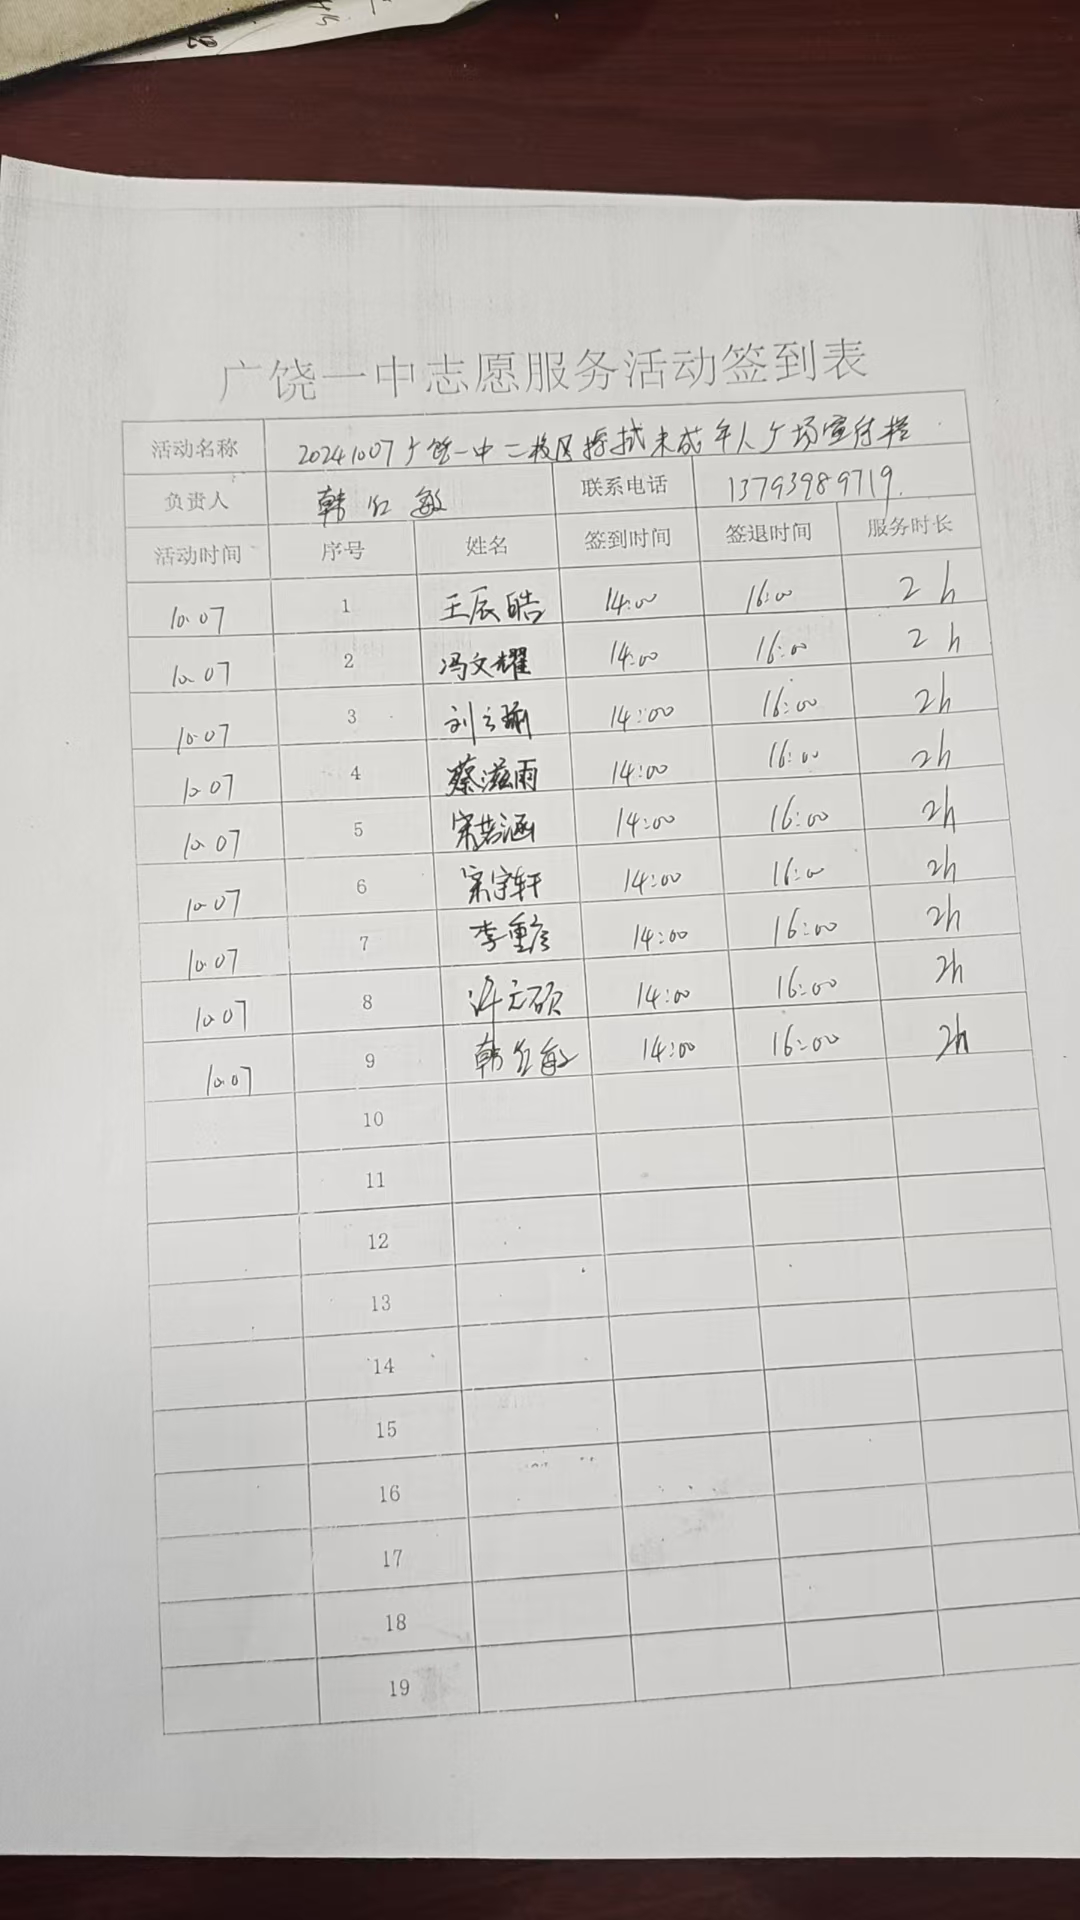 广饶一中志愿服务活动签到表
活动名称 20241007广饶一中二校区擦拭未成年人广场宣传栏
负责人 韩红敏 联系电话 13793989719
活动时间 序号 姓名 签到时间 签退时间 服务时长
10.07 1 王辰皓 14:00 16:00 2h
10.07 2 冯文耀 14:00 16:00 2h
10.07 3 刘 14:00 16:00 2h
10.07 4 蔡滋雨 14:00 16:00 2h
10.07 5 宋若涵 14:00 16:00 2h
10.07 6 宋宇轩 14:00 16:00 2h
10.07 7 李重 14:00 16:00 2h
10.07 8 许元硕 14:00 16:00 2h
10.07 9 韩红敏 14:00 16:00 2h
10
11
12
13
14
15
16
17
18
19